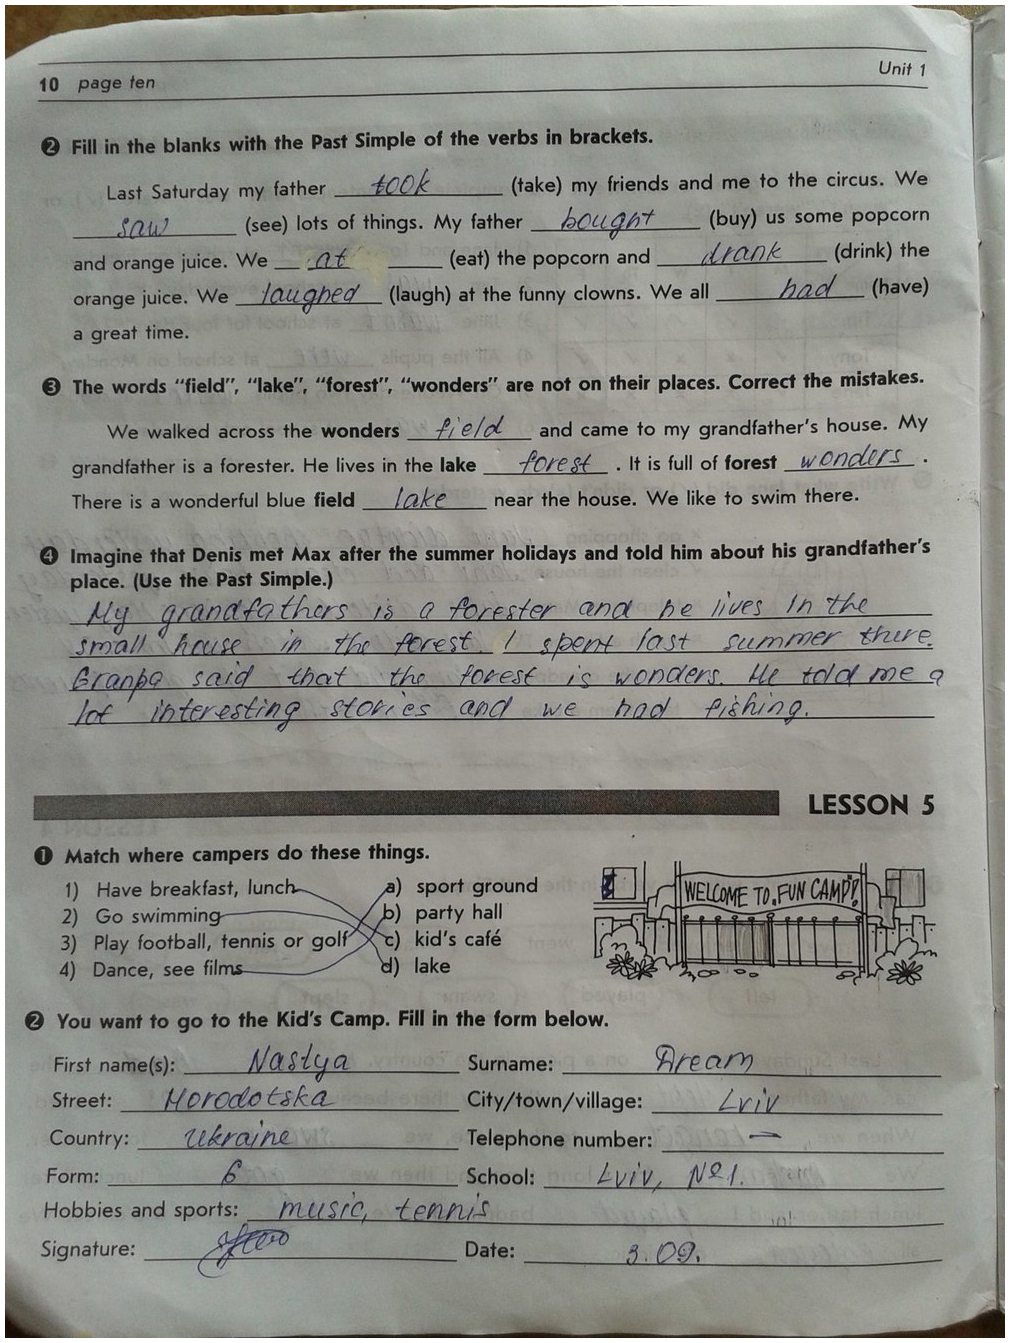 10 page ten Unit 1
2 Fill in the blanks with the Past Simple of the verbs in brackets.
Last Saturday my father took (take) my friends and me to the circus. We
saw (see) lots of things. My father bought (buy) us some popcorn
and orange juice. We at (eat) the popcorn and drank (drink) the
orange juice. We laughed (laugh) at the funny clowns. We all had (have)
a great time.
3 The words “field”, “lake”, “forest”, “wonders” are not on their places. Correct the mistakes.
We walked across the wonders field and came to my grandfather’s house. My
grandfather is a forester. He lives in the lake forest . It is full of forest wonders .
There is a wonderful blue field lake near the house. We like to swim there.
4 Imagine that Denis met Max after the summer holidays and told him about his grandfather’s
place. (Use the Past Simple.)
My grandfathers is a forester and he lives in the
small house in the forest. I spent last summer there.
Granpa said that the forest is wonders. He told me a
lot interesting stories and we had fishing.
LESSON 5
1 Match where campers do these things.
1) Have breakfast, lunch a) sport ground
2) Go swimming b) party hall
3) Play football, tennis or golf c) kid’s café
4) Dance, see films d) lake
WELCOME TO FUN CAMP!
2 You want to go to the Kid’s Camp. Fill in the form below.
First name(s): Nastya Surname: Dream
Street: Horodotska City/town/village: Lviv
Country: Ukraine Telephone number: —
Form: 6 School: Lviv, №1.
Hobbies and sports: music, tennis
Signature: Date: 3.09.